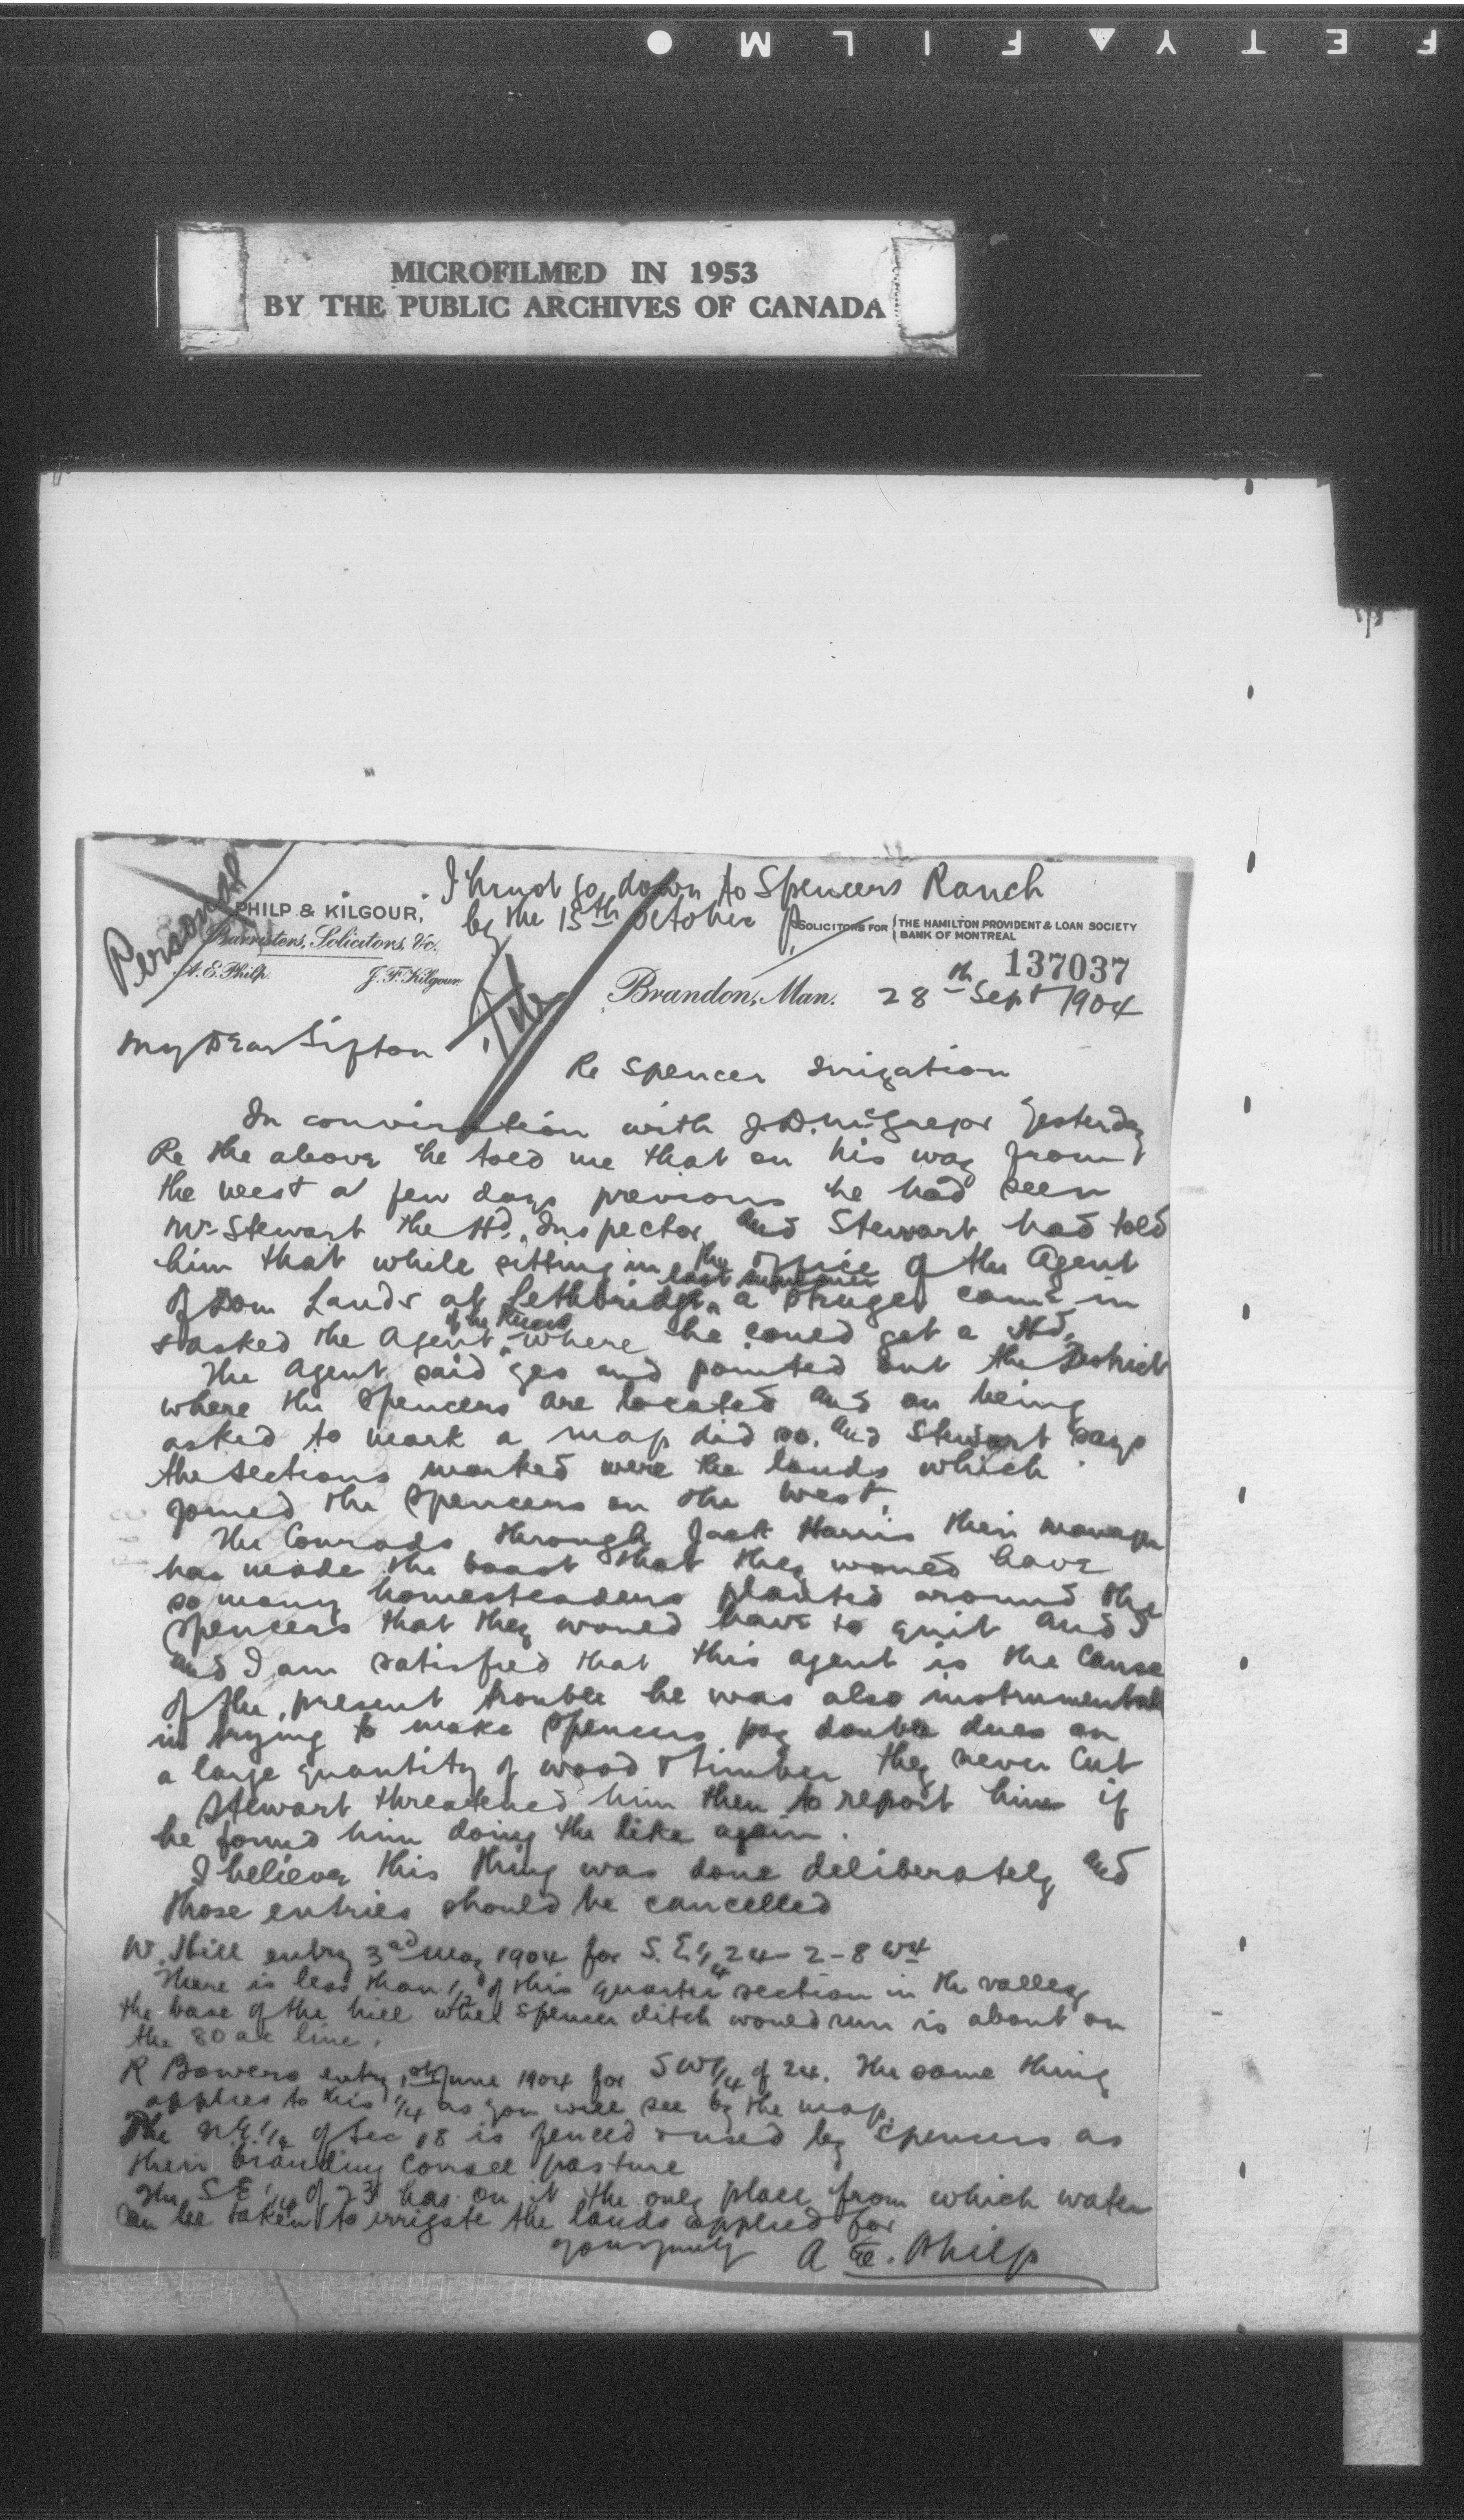 F E T Y ▲ F I L M ●
MICROFILMED IN 1953
BY THE PUBLIC ARCHIVES OF CANADA
Personal
I must go down to Spencers Ranch
by the 15th October
PHILP & KILGOUR,
Barristers, Solicitors, &c.
A. E. Philp. J. F. Kilgour.
SOLICITORS FOR { THE HAMILTON PROVIDENT & LOAN SOCIETY
BANK OF MONTREAL
137037
Brandon, Man. 28th Sept 1904
My Dear Sifton
Re Spencer Irrigation
In conversation with J.D. McGregor yesterday
Re the above he told me that on his way from
the west a few days previous he had seen
Mr Stewart the Hd. Inspector and Stewart had told
him that while sitting in the office of the Agent
of Dom Lands at Lethbridge last summer a stranger came in
& asked the Agent where he could get a Hd.
The Agent said yes and pointed out the District
where the Spencers are located and on being
asked to mark a map did so. and Stewart says
the sections marked were the lands which
joined the Spencers on the West.
The Conrads through Jack Harris their manager
has made the boast that they would have
so many homesteaders planted around the
Spencers that they would have to quit and
and I am satisfied that this agent is the cause
of the present trouble he was also instrumental
in trying to make Spencers pay double dues on
a large quantity of wood & timber they never cut
Stewart threatened him then to report him if
he found him doing the like again.
I believe this thing was done deliberately and
those entries should be cancelled
W. Hill entry 3rd May 1904 for S.E 1/4 24-2-8 W4
There is less than 1/2 of this quarter section in the valley
the base of the hill where Spencer ditch would run is about on
the 80 ac line.
R Bowers entry 1st June 1904 for SW 1/4 of 24. The same thing
applies to this 1/4 as you will see by the map.
The N.E. 1/4 of Sec 18 is fenced & used by Spencers as
their branding corrall pasture
The SE 1/4 of 23 has on it the only place from which water
can be taken to irrigate the lands applied for
yours truly A. E. Philp